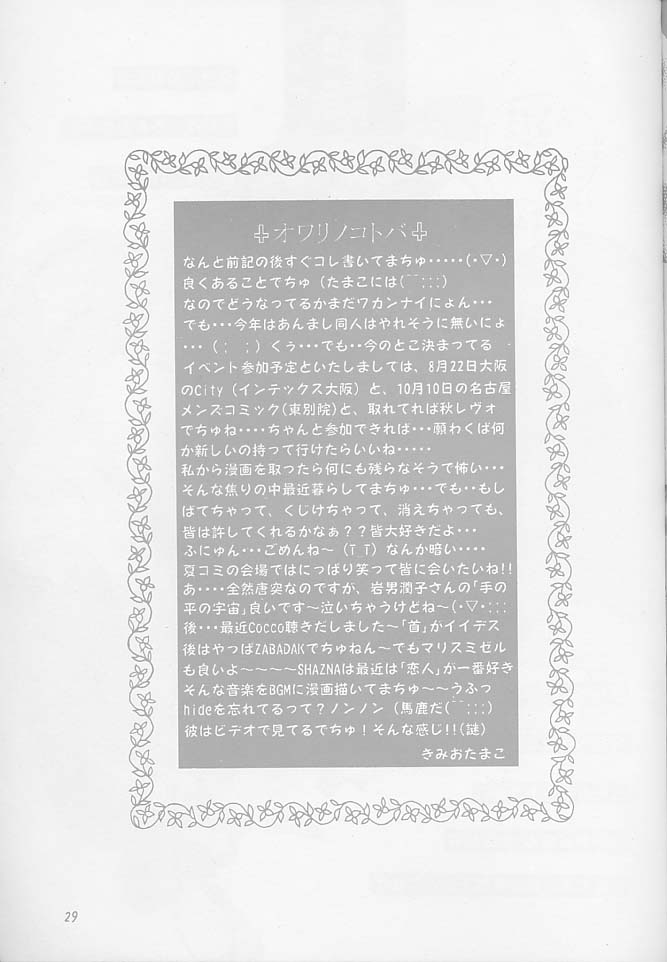 ✙オワリノコトバ✙
なんと前記の後すぐコレ書いてまちゅ・・・・・(・▽・)
良くあることでちゅ（たまこには(￣;;;)
なのでどうなってるかまだワカンナイにょん・・・
でも・・・今年はあんまし同人はやれそうに無いにょ
・・・（；　；）くぅ・・・でも・・今のとこ決まってる
イベント参加予定といたしましては、8月22日大阪
のCity（インテックス大阪）と、10月10日の名古屋
メンズコミック(東別院)と、取れてれば秋レヴォ
でちゅね・・・・ちゃんと参加できれば・・・願わくば何
か新しいの持って行けたらいいね・・・・・
私から漫画を取ったら何にも残らなそうで怖い・・・
そんな焦りの中最近暮らしてまちゅ・・・でも・・もし
ばてちゃって、くじけちゃって、消えちゃっても、
皆は許してくれるかなぁ？？皆大好きだよ・・・
ふにゅん・・・ごめんね〜（T_T）なんか暗い・・・・
夏コミの会場ではにっぱり笑って皆に会いたいね!!
あ・・・・全然唐突なのですが、岩男潤子さんの「手の
平の宇宙」良いです〜泣いちゃうけどね〜(・▽・;;;
後・・・最近Cocco聴きだしました〜「首」がイイデス
後はやっぱZABADAKでちゅねん〜でもマリスミゼル
も良いよ〜〜〜〜SHAZNAは最近は「恋人」が一番好き
そんな音楽をBGMに漫画描いてまちゅ〜〜うふっ
hideを忘れてるって？ノンノン（馬鹿だ(￣;;;)
彼はビデオで見てるでちゅ！そんな感じ!!(謎)
きみおたまこ
29